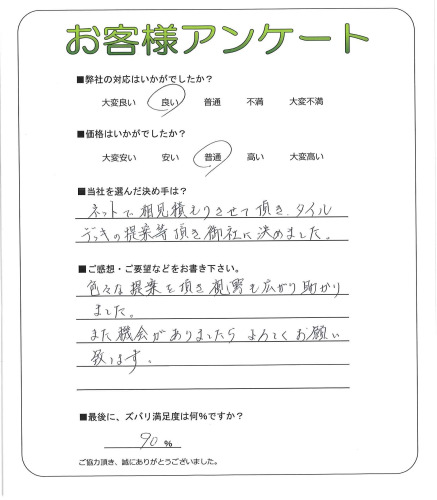 お客様アンケート
■弊社の対応はいかがでしたか？
大変良い 良い 普通 不満 大変不満
■価格はいかがでしたか？
大変安い 安い 普通 高い 大変高い
■当社を選んだ決め手は？
ネットで相見積もりさせて頂き、タイル
デッキの提案等頂き御社に決めました。
■ご感想・ご要望などをお書き下さい。
色々な提案を頂き視野も広がり助かり
ました。
また機会がありましたらよろしくお願い
致します。
■最後に、ズバリ満足度は何％ですか？
90 %
ご協力頂き、誠にありがとうございました。